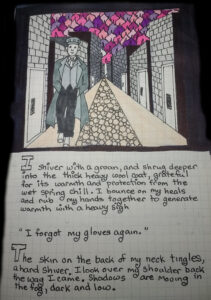 I shiver with a groan, and shrug deeper
into the thick heavy wool coat, grateful
for its warmth and protection from the
wet spring chill. I bounce on my heals
and rub my hands together to generate
warmth with a heavy sigh
"I forgot my gloves again."
The skin on the back of my neck tingles,
a hard shiver, I look over my shoulder back
the way I came. Shadows are moving in
the fog, dark and low.